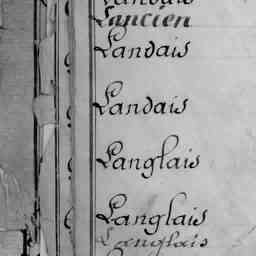 Lancien
Landais
Landais
Langlais
Langlais
Langlais